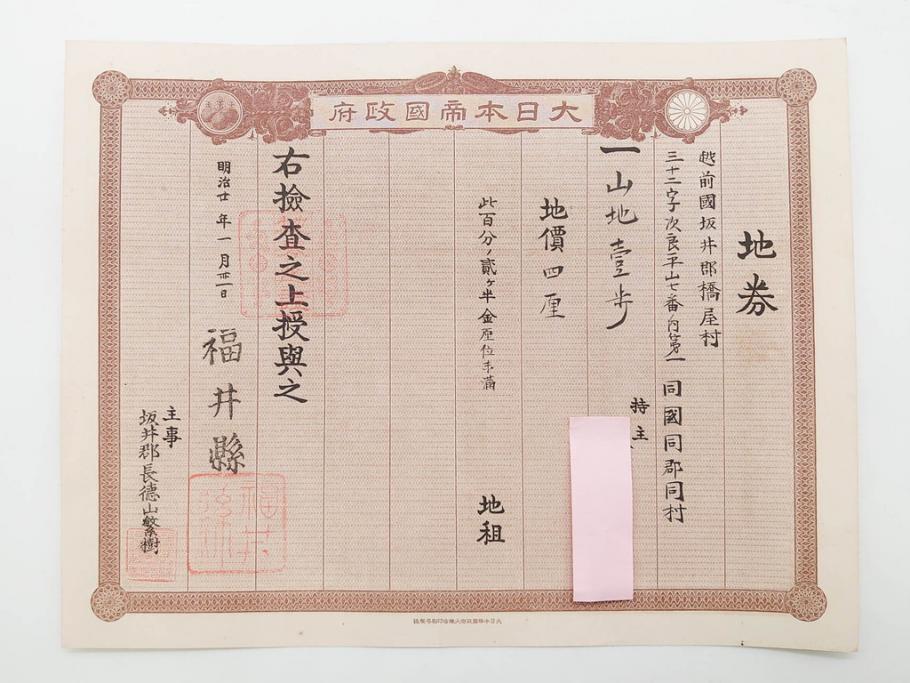 大日本帝國政府
地券
越前國坂井郡橋屋村
三十二字次良平山七番内第一
同國同郡同村
持主
一山地壹歩
地價四厘
此百分ノ貳ヶ半金厘位未滿
地租
右檢査之上授與之
明治廿年一月卅一日
福井縣
主事
坂井郡長德山繁樹
大日本帝國政府大藏省印刷局製造